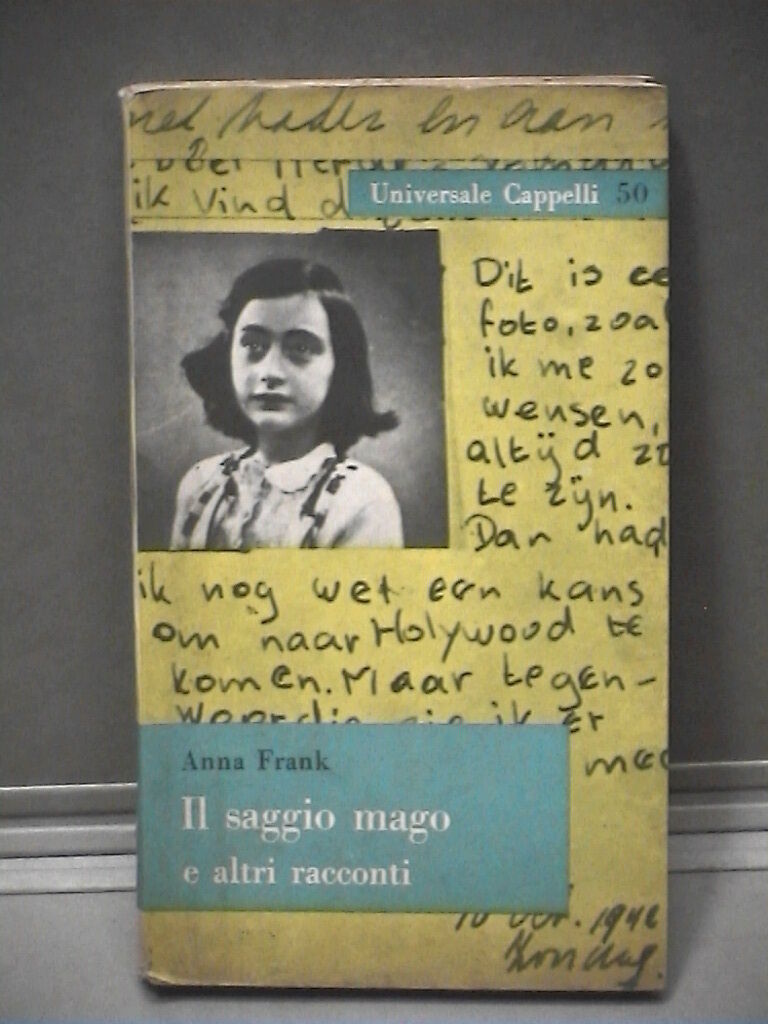 net vader en aan
ik vind d
Universale Cappelli 50
Dit is ee
foto, zoa
ik me zo
wensen,
altijd zo
te zijn.
Dan had
ik nog wel een kans
om naar Holywood te
komen. Maar tegen-
woordig zie ik er
mee
Anna Frank
Il saggio mago
e altri racconti
10 Oct. 1942